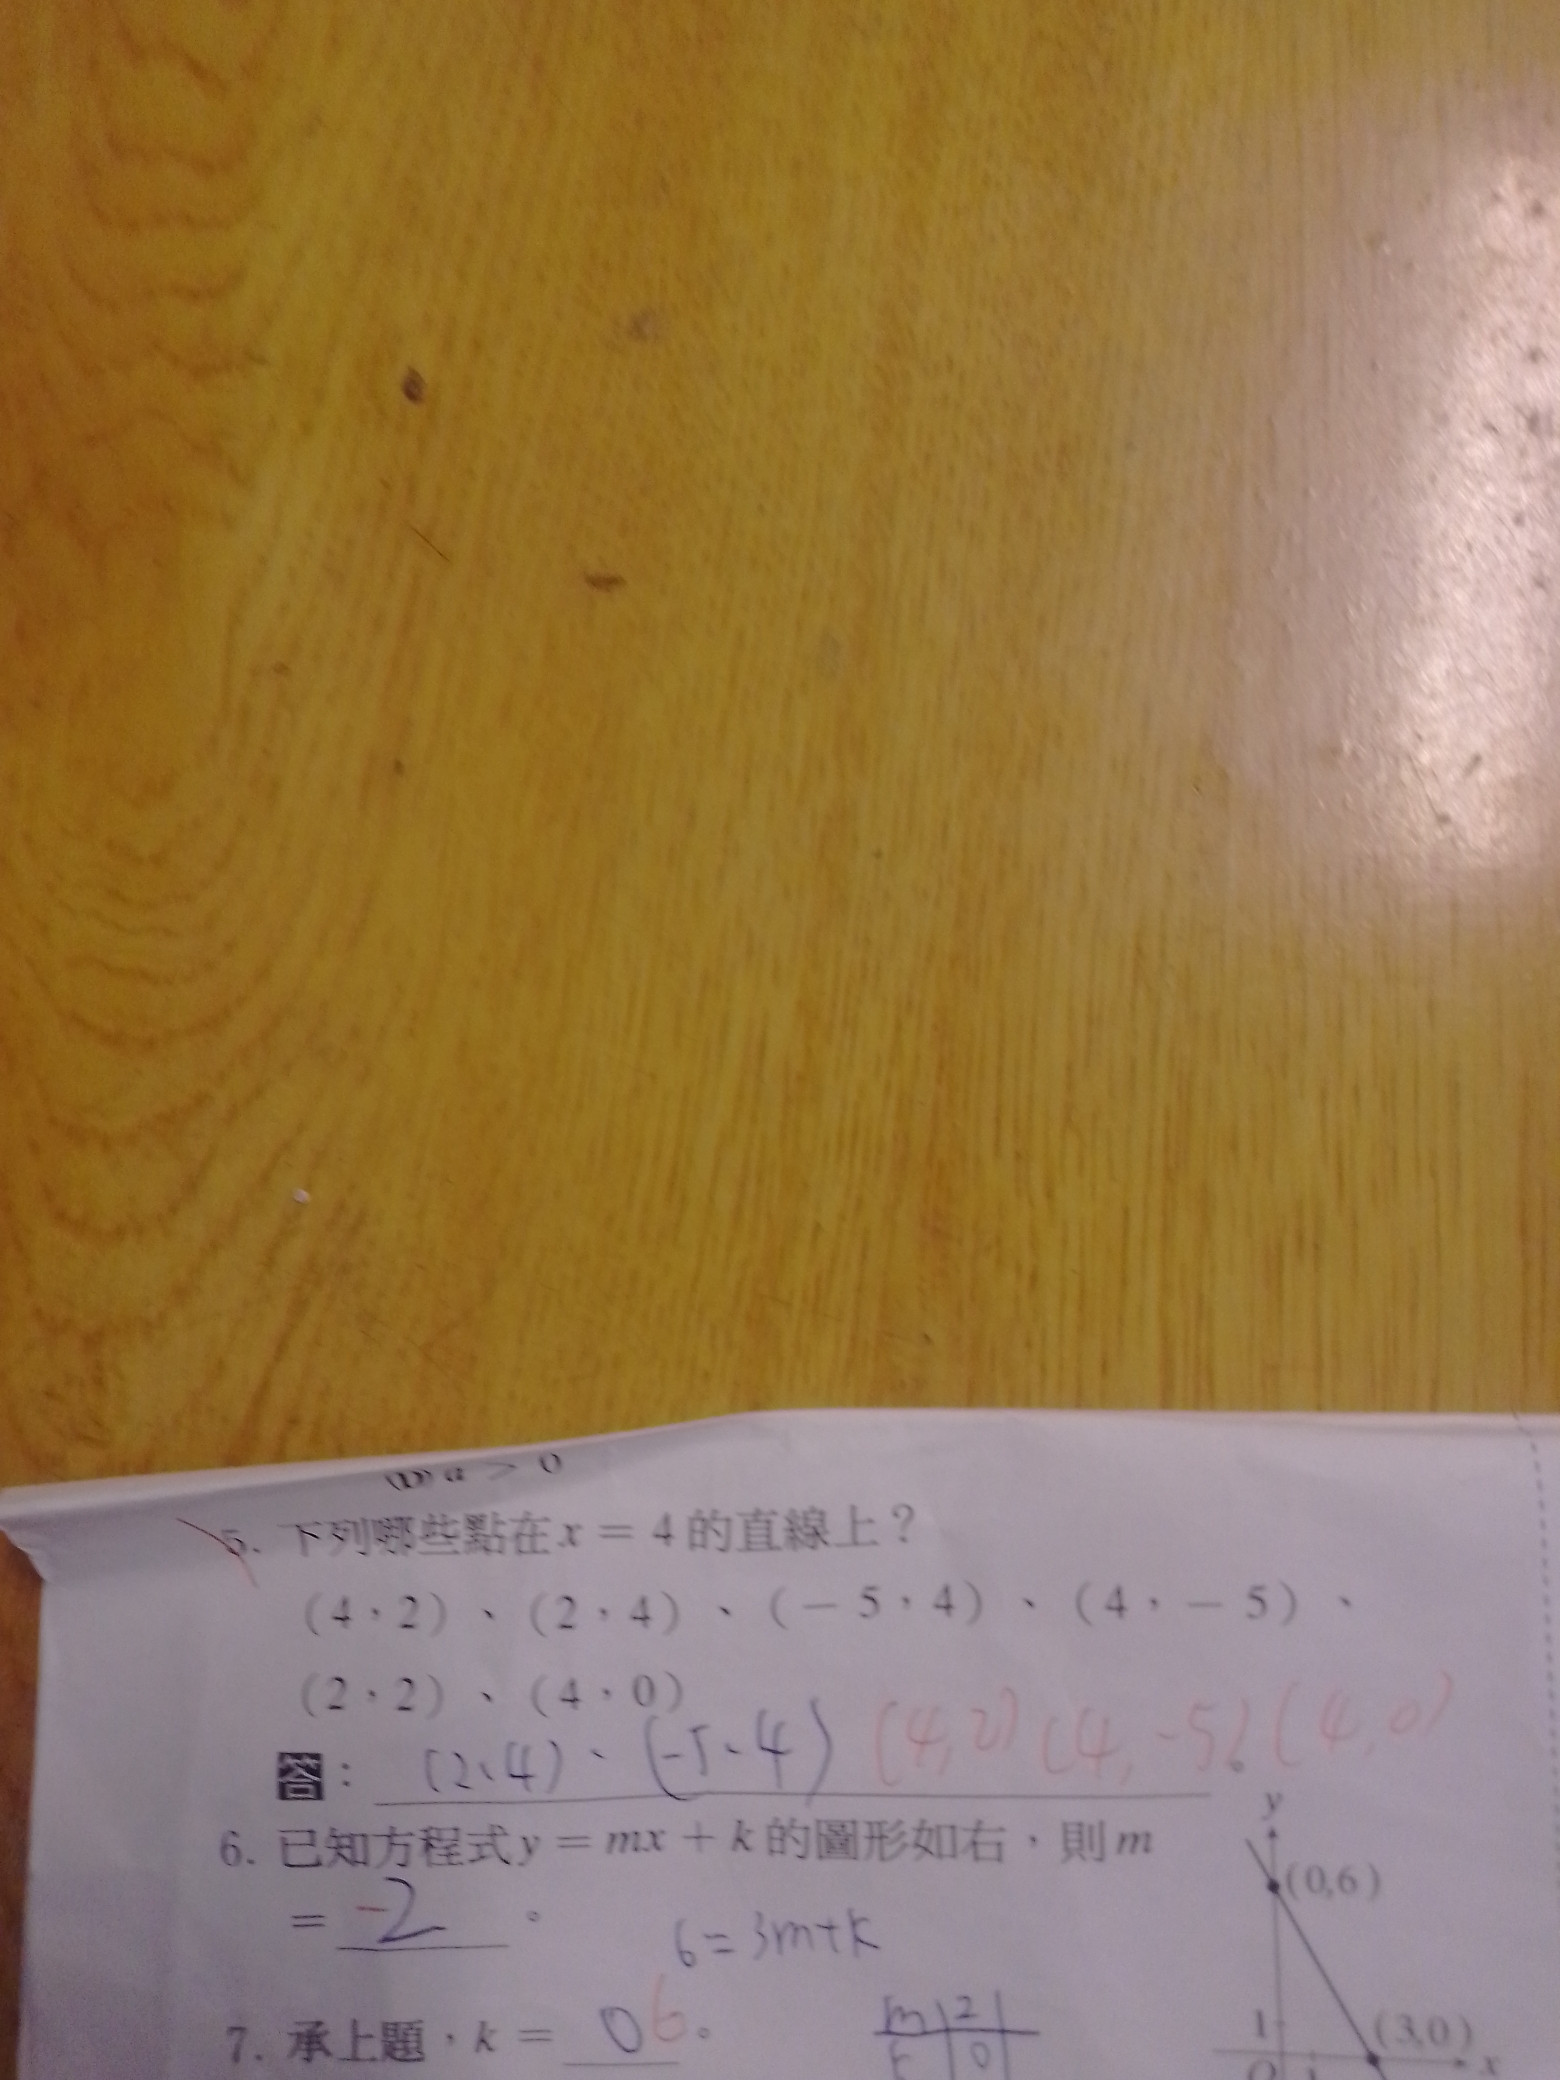 (D) a > 0
5. 下列哪些點在x = 4的直線上？
(4，2)、(2，4)、(－5，4)、(4，－5)、
(2，2)、(4，0)
答： (2、4)、(-5、4) (4,2) (4,-5) (4,0)。
6. 已知方程式y = mx + k的圖形如右，則m
= -2 。
6=3m+k
7. 承上題，k = 0 6。
m 2
k 0
y
(0,6)
1
(3,0)
x
O 1